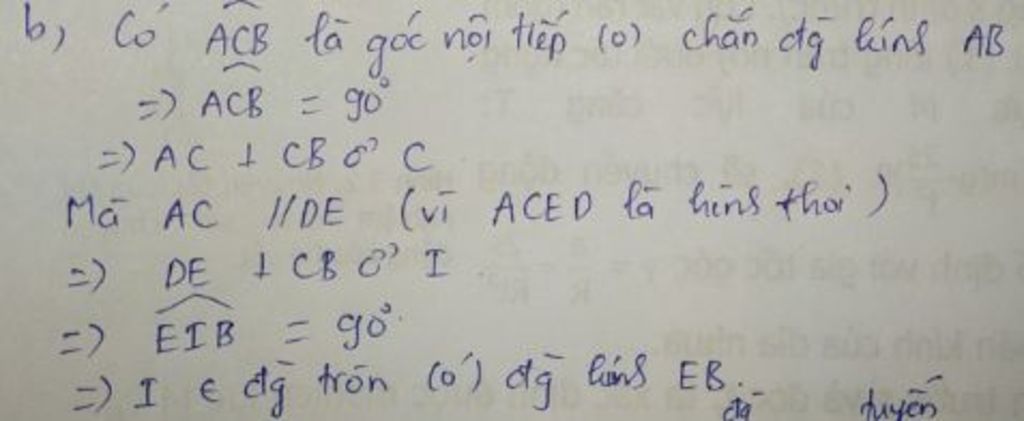 b, Có ACB là góc nội tiếp (O) chắn đg kính AB
=> ACB = 90°
=> AC ⊥ CB ở C
Mà AC // DE (vì ACED là hình thoi)
=> DE ⊥ CB ở I
=> EIB = 90°
=> I ∈ đg tròn (O') đg kính EB.
tuyến